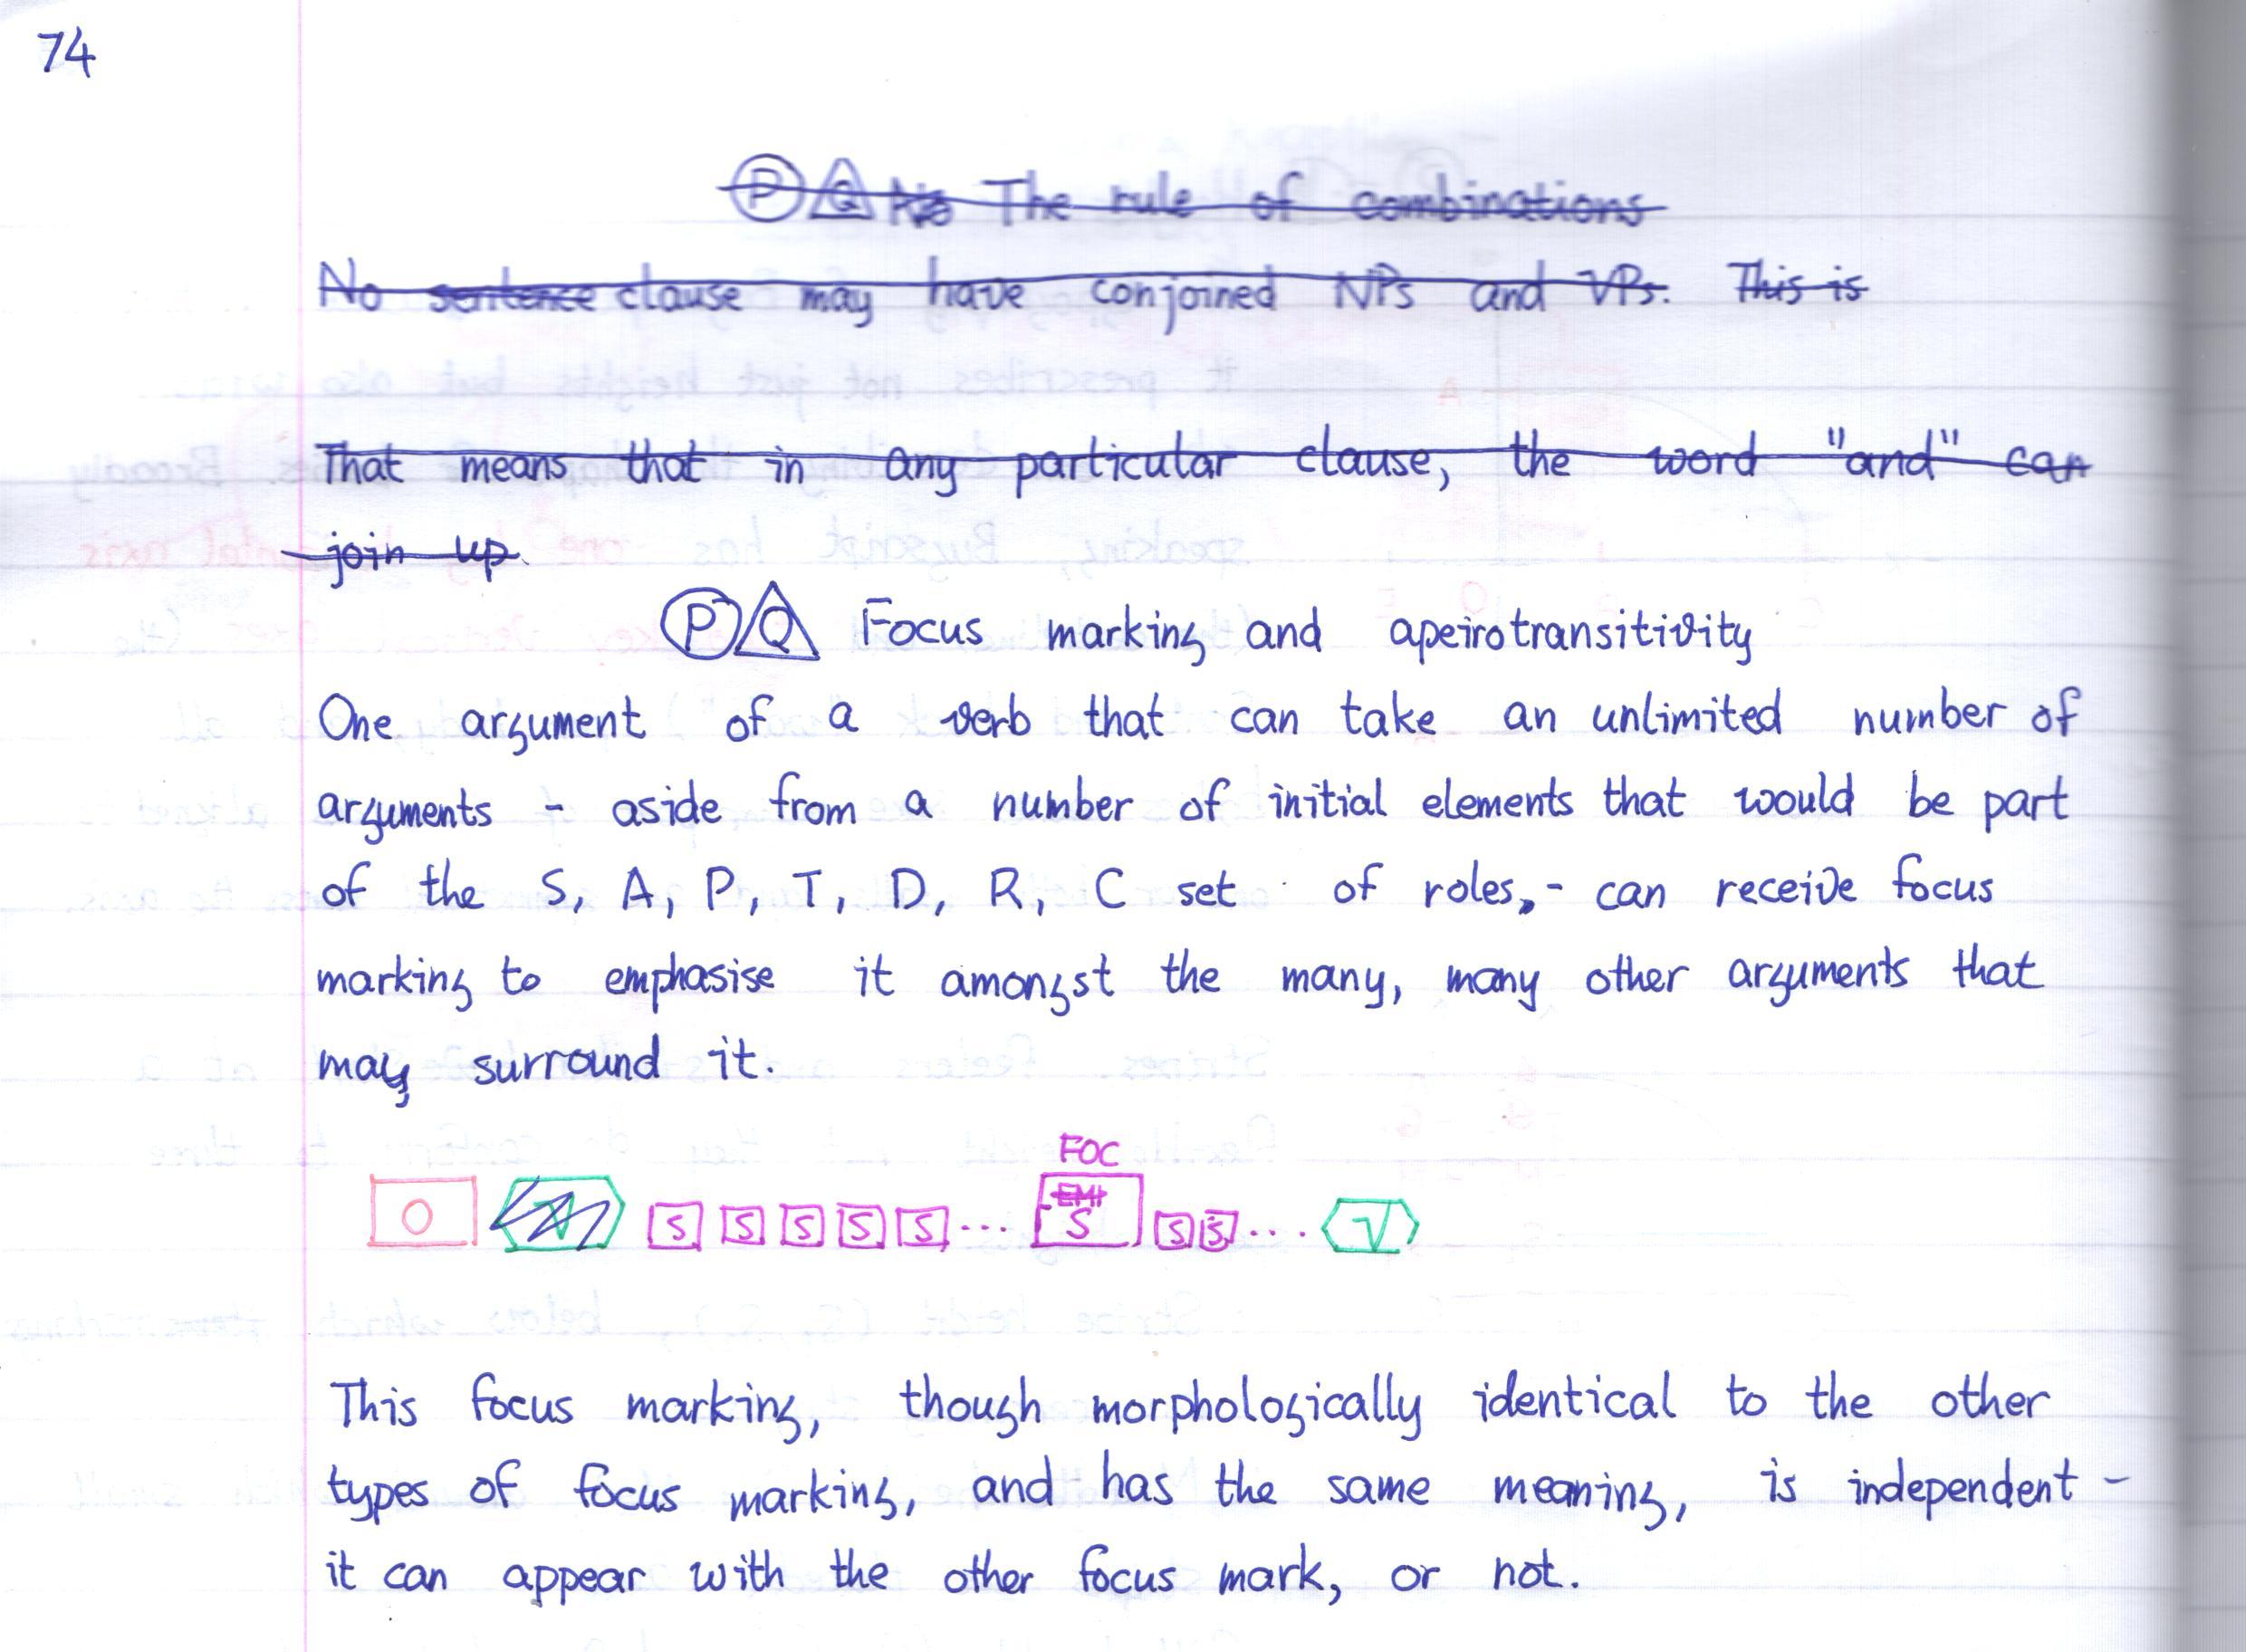 74
P Q No The rule of combinations
No sentence clause may have conjoined NPs and VPs. This is
That means that in any particular clause, the word "and" can
join up.
P Q Focus marking and apeirotransitivity
One argument of a verb that can take an unlimited number of
arguments - aside from a number of initial elements that would be part
of the S, A, P, T, D, R, C set of roles, - can receive focus
marking to emphasise it amongst the many, many other arguments that
may surround it.
FOC
O V S S S S S ... EMP S S S ... V
This focus marking, though morphologically identical to the other
types of focus marking, and has the same meaning, is independent -
it can appear with the other focus mark, or not.